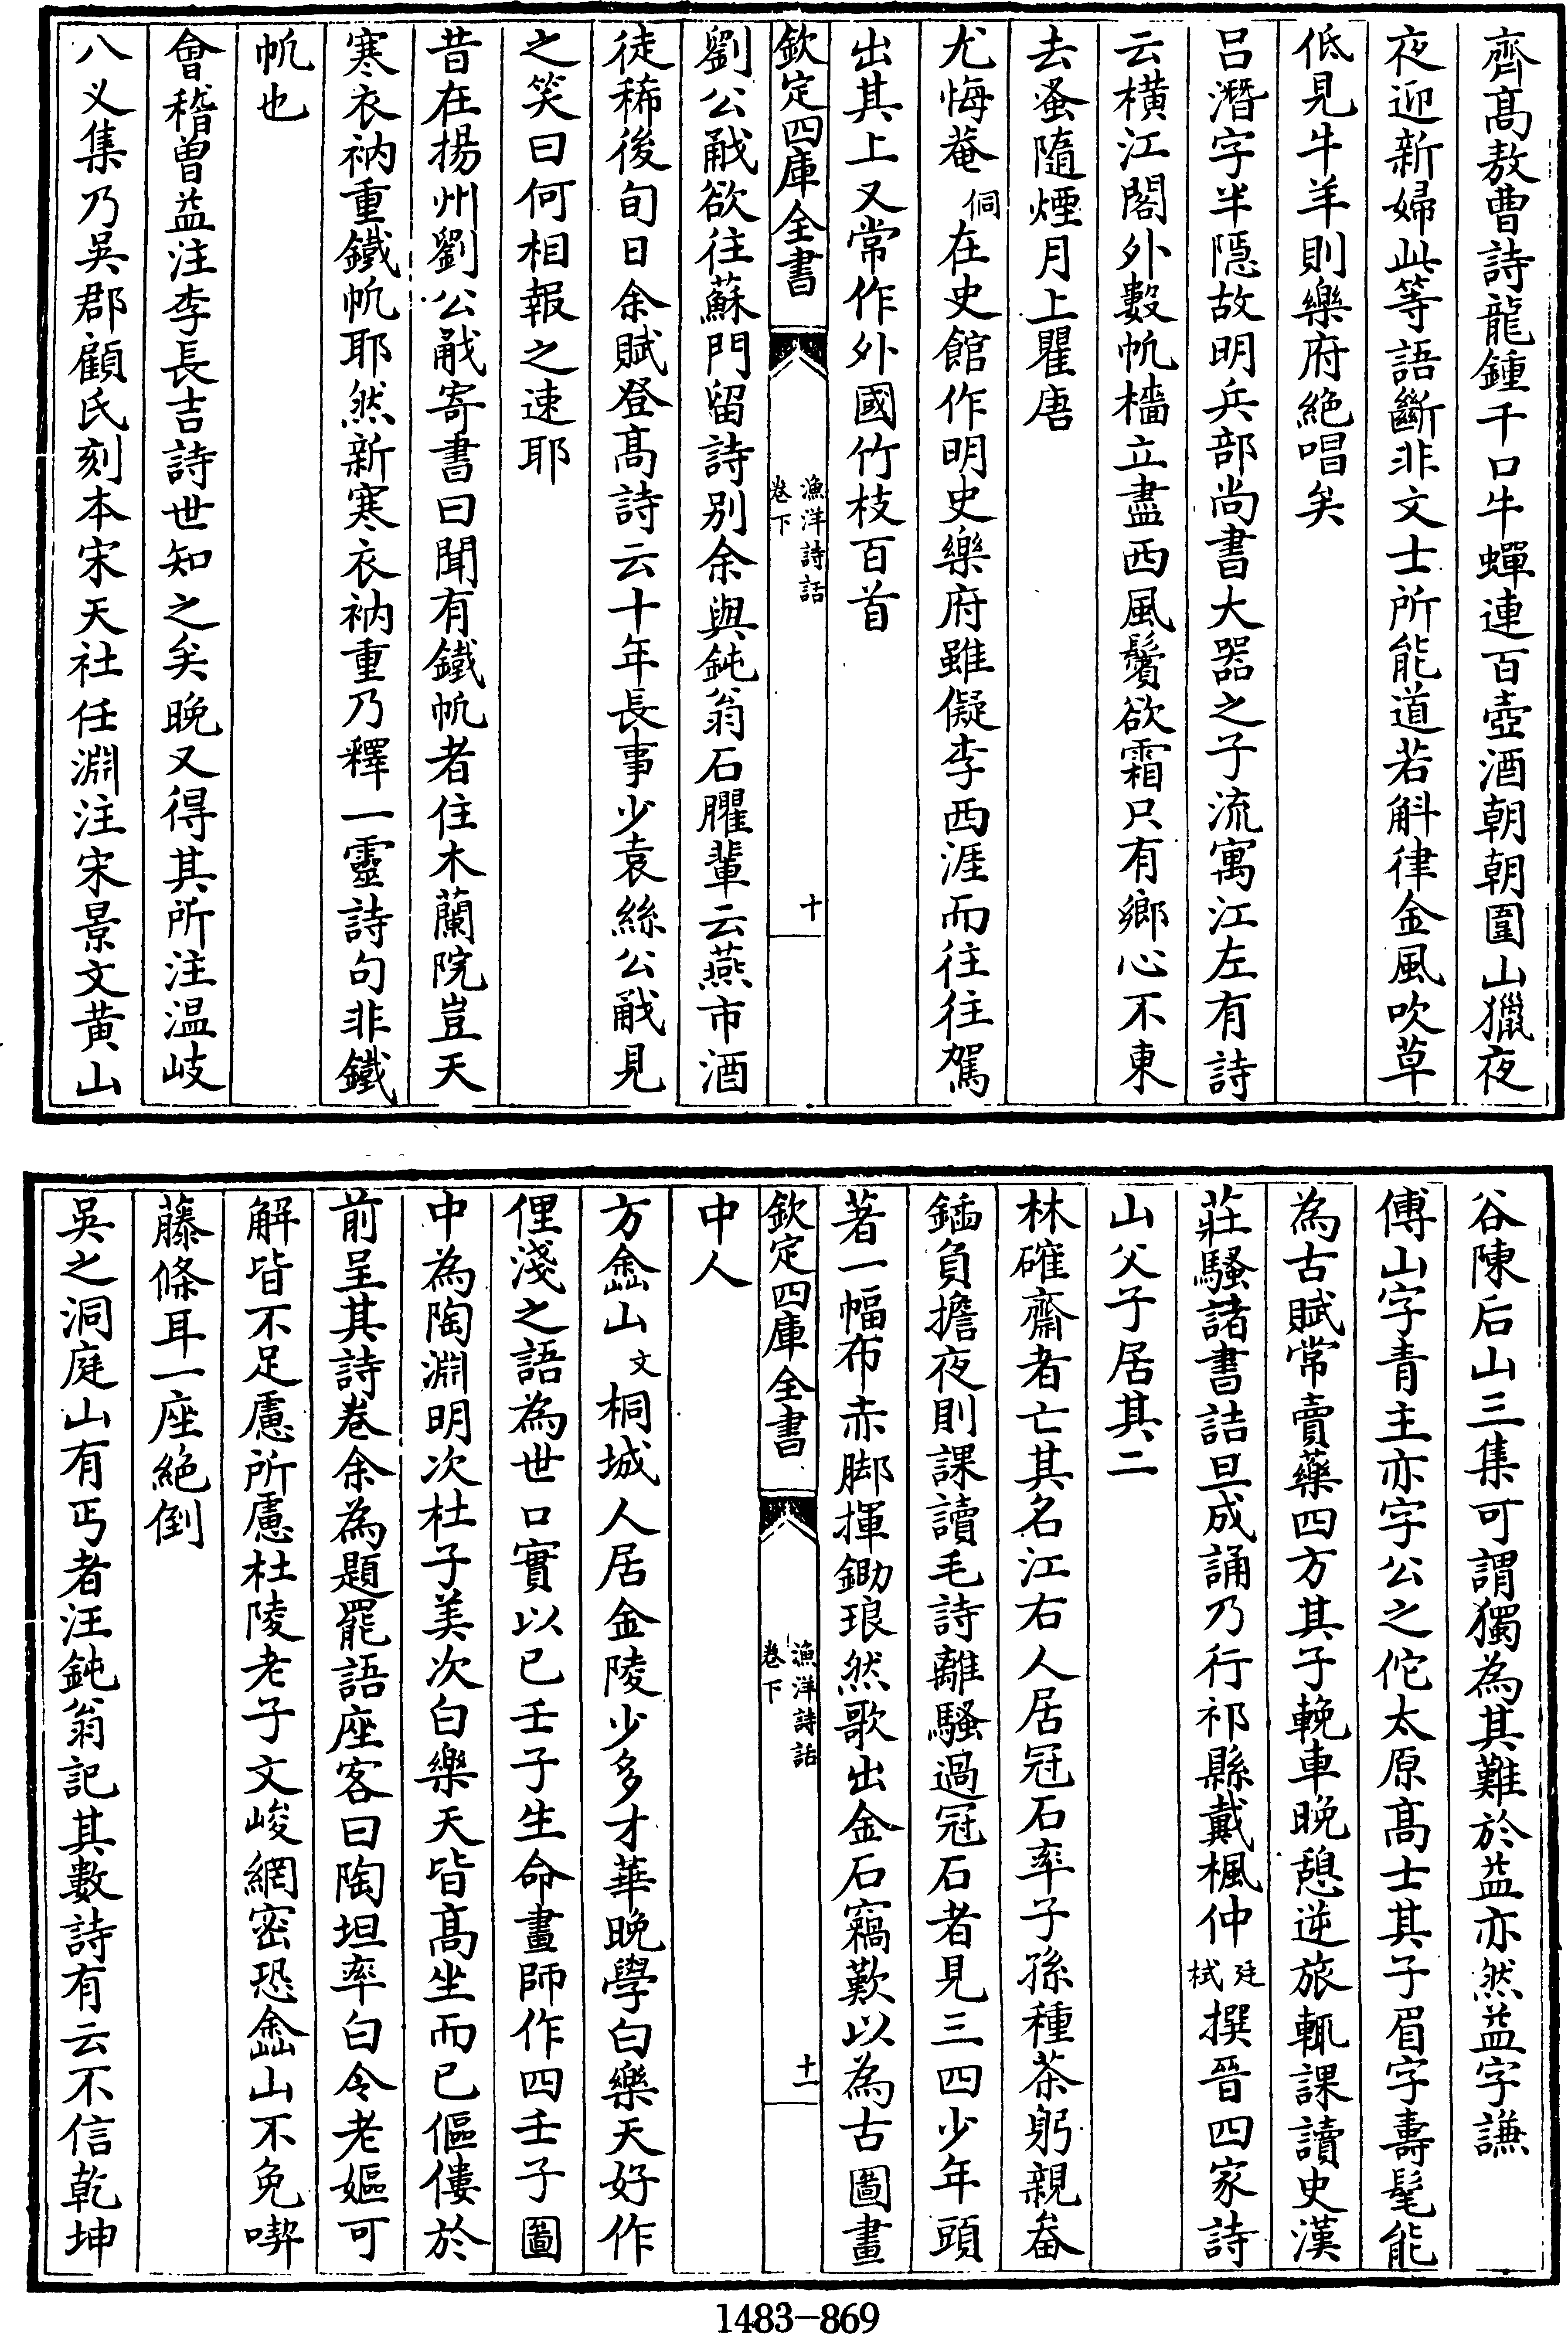 齊髙敖曹詩龍鍾千口牛蟬連百壺酒朝朝圍山獵夜
夜迎新婦此等語斷非文士所能道若斛律金風吹草
低見牛羊則樂府絶唱矣
吕潛字半隠故明兵部尚書大器之子流寓江左有詩
云横江閣外數帆檣立盡西風鬢欲霜只有鄉心不東
去蚤隨煙月上瞿唐
尤悔菴侗在史館作明史樂府雖儗李西涯而往往駕
出其上又常作外國竹枝百首
欽定四庫全書
漁洋詩話
卷下
十
劉公㦷欲往蘇門留詩别余與鈍翁石臞輩云燕市酒
徒稀後旬日余賦登髙詩云十年長事少袁絲公㦷見
之笑曰何相報之速耶
昔在揚州劉公㦷寄書曰聞有鐵帆者住木蘭院豈天
寒衣衲重鐵帆耶然新寒衣衲重乃釋一靈詩句非鐵
帆也
會稽曽益注李長吉詩世知之矣晚又得其所注温岐
八义集乃吳郡顧氏刻本宋天社任淵注宋景文黄山
谷陳后山三集可謂獨為其難於益亦然益字謙
傅山字青主亦字公之佗太原髙士其子眉字夀髦能
為古賦常賣藥四方其子輓車晚憩逆旅輒課讀史漢
莊騷諸書詰旦成誦乃行祁縣戴楓仲廷
栻撰晉四家詩
山父子居其二
林確齋者亡其名江右人居冠石率子孫種茶躬親畚
鍤負擔夜則課讀毛詩離騷過冠石者見三四少年頭
著一幅布赤脚揮鋤琅然歌出金石竊歎以為古圖畫
中人
欽定四庫全書
漁洋詩話
卷下
十一
方嵞山文桐城人居金陵少多才華晚學白樂天好作
俚淺之語為世口實以已壬子生命畫師作四壬子圖
中為陶淵明次杜子美次白樂天皆髙坐而已傴僂於
前呈其詩卷余為題罷語座客曰陶坦率白令老嫗可
解皆不足慮所慮杜陵老子文峻網密恐嵞山不免喫
藤條耳一座絶倒
吳之洞庭山有丐者汪鈍翁記其數詩有云不信乾坤
1483-869